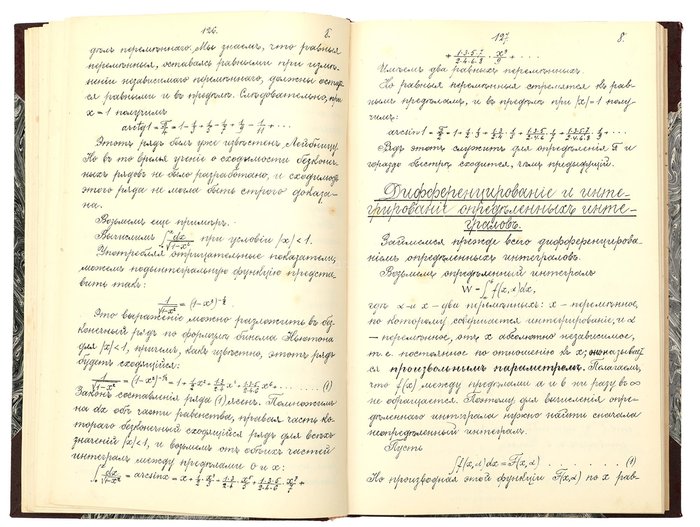 126.
8.
дѣлъ перемѣннаго. Мы знаемъ, что равныя
перемѣнныя, оставаясь равными при измѣ-
неніи независимаго перемѣннаго, должны остать-
ся равными и въ предѣлѣ. Слѣдовательно, при
x=1 получимъ
arctg1 = π/4 = 1 - 1/3 + 1/5 - 1/7 + 1/9 - 1/11 + ...
Этотъ рядъ былъ уже извѣстенъ Лейбницу.
Но въ то время ученіе о сходимости безконеч-
ныхъ рядовъ не было разработано, и сходимость
этого ряда не могла быть строго доказа-
на.
Возьмемъ еще примѣръ.
Вычислимъ ∫₀ˣ dx/√(1-x²) при условіи |x| < 1.
Употребляя отрицательные показатели,
можемъ подинтегральную функцію предста-
вить такъ:
1/√(1-x²) = (1-x²)^(-1/2).
Это выраженіе можно разложить въ без-
конечный рядъ по формулѣ бинома Ньютона
для |x|<1, причемъ, какъ извѣстно, этотъ рядъ
будетъ сходящійся:
1/√(1-x²) = (1-x²)^(-1/2) = 1 + 1/2 x² + 1·3/2·4 x⁴ + 1·3·5/2·4·6 x⁶ + . . . . . (1)
Законъ составленія ряда (1) ясенъ. Помножимъ
на dx обѣ части равенства, правая часть ко-
тораго безконечный сходящійся рядъ для всѣхъ
значеній |x|<1, и возьмемъ отъ обѣихъ частей
интегралъ между предѣлами 0 и x:
∫₀ˣ dx/√(1-x²) = arcsin x = x + 1/2 · x³/3 + 1·3/2·4 · x⁵/5 + 1·3·5/2·4·6 · x⁷/7 +
127.
8.
+ 1·3·5·7/2·4·6·8 · x⁹/9 + . . .
Имѣемъ два равныхъ перемѣнныхъ.
Но равныя перемѣнныя стремятся къ рав-
нымъ предѣламъ, и въ предѣлѣ при |x|=1 полу-
чимъ:
arcsin 1 = π/2 = 1 + 1/2 · 1/3 + 1·3/2·4 · 1/5 + 1·3·5/2·4·6 · 1/7 + 1·3·5·7/2·4·6·8 · 1/9 + ...
Рядъ этотъ служитъ для опредѣленія π и
гораздо быстрѣе сходится, чѣмъ предыдущій.
Дифференцированіе и инте-
грированіе опредѣленныхъ инте-
граловъ.
Займемся прежде всего дифференцирова-
ніемъ опредѣленныхъ интеграловъ.
Возьмемъ опредѣленный интегралъ
W = ∫ f(x,α)dx,
гдѣ α и x – два перемѣнныхъ: x – перемѣнное,
по которому совершается интегрированіе, и α
– перемѣнное, отъ x абсолютно независимое,
т.е. постоянное по отношенію къ x; оно называет-
ся произвольнымъ параметромъ. Полагаемъ,
что f(x) между предѣлами a и b ни разу въ ∞
не обращается. Поэтому для вычисленія опре-
дѣленнаго интеграла нужно найти сначала
неопредѣленный интегралъ.
Пусть
∫f(x,α)dx = F(x,α) . . . . . . . . (1)
Но производная этой функціи F(x,α) по x рав-